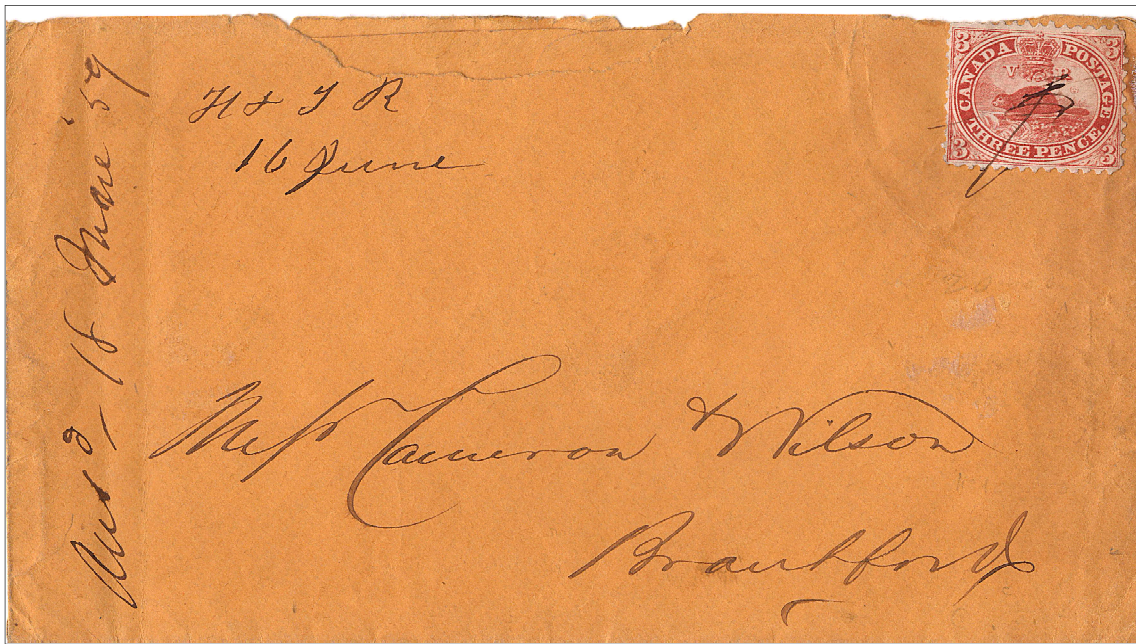 H & T R
16 June
Ansd, 18 June '59
3 CANADA POSTAGE 3
V R
3 THREE PENCE. 3
Mess Cameron & Wilson
Brantford